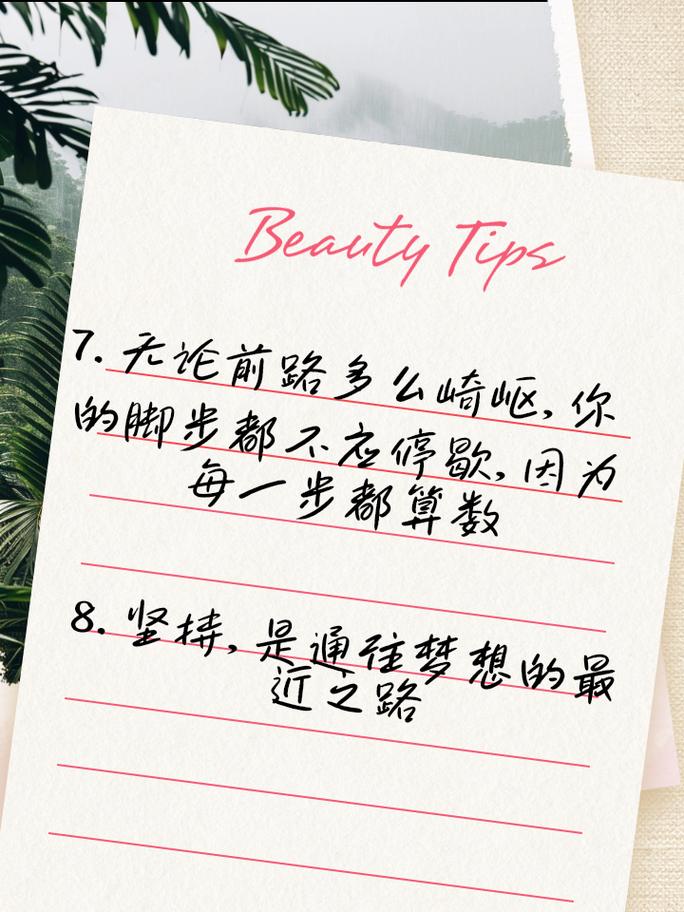 Beauty Tips
7. 无论前路多么崎岖, 你
的脚步都不应停歇, 因为
每一步都算数
8. 坚持, 是通往梦想的最
近之路